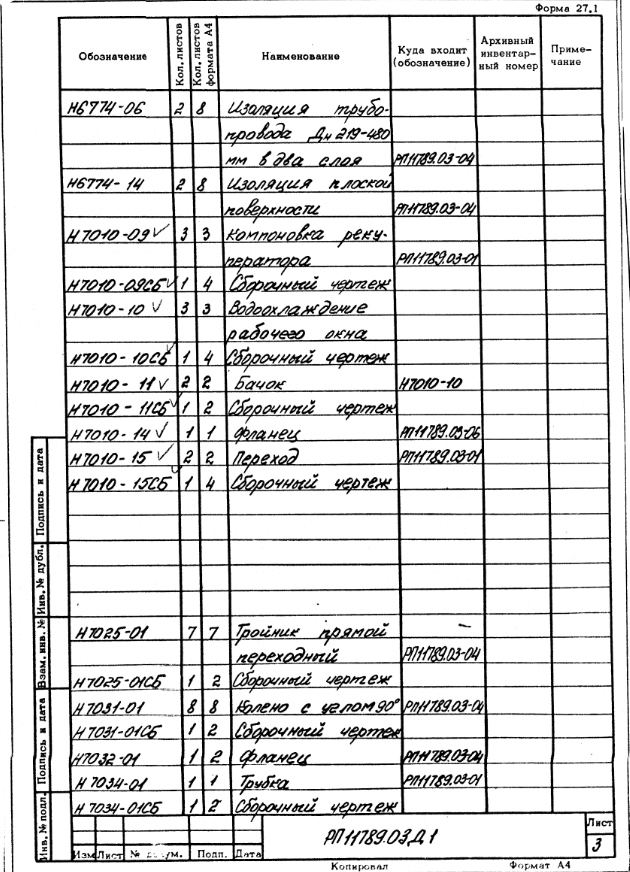 Форма 27.1
Обозначение Кол. листов Кол. листов формата А4 Наименование Куда входит (обозначение) Архивный инвентарный номер Примечание
Н6774-06 2 8 Изоляция трубо-
провода Дн 219-480
мм в два слоя РП11789.03-04
Н6774-14 2 8 Изоляция плоской
поверхности РП11789.03-04
Н7010-09 ✓ 3 3 Компоновка реку-
ператора РП11789.03-01
Н7010-09СБ ✓ 1 4 Сборочный чертеж
Н7010-10 ✓ 3 3 Водоохлаждение
рабочего окна
Н7010-10СБ ✓ 1 4 Сборочный чертеж
Н7010-11 ✓ 2 2 Бачок Н7010-10
Н7010-11СБ ✓ 1 2 Сборочный чертеж
Н7010-14 ✓ 1 1 Фланец РП11789.03-06
Н7010-15 ✓ 2 2 Переход РП11789.03-01
Н7010-15СБ ✓ 1 4 Сборочный чертеж
Н7025-01 7 7 Тройник прямой –
переходный РП11789.03-04
Н7025-01СБ 1 2 Сборочный чертеж
Н7031-01 8 8 Колено с углом 90° РП11789.03-04
Н7031-01СБ 1 2 Сборочный чертеж
Н7032-01 1 2 Фланец РП11789.03-04
Н7034-01 1 1 Трубка РП11789.03-01
Н7034-01СБ 1 2 Сборочный чертеж
Подпись и дата
Инв. № дубл.
Взам. инв. №
Подпись и дата
Инв. № подл.
РП11789.03Д1
Лист
3
Изм Лист № докум. Подп. Дата
Копировал Формат А4